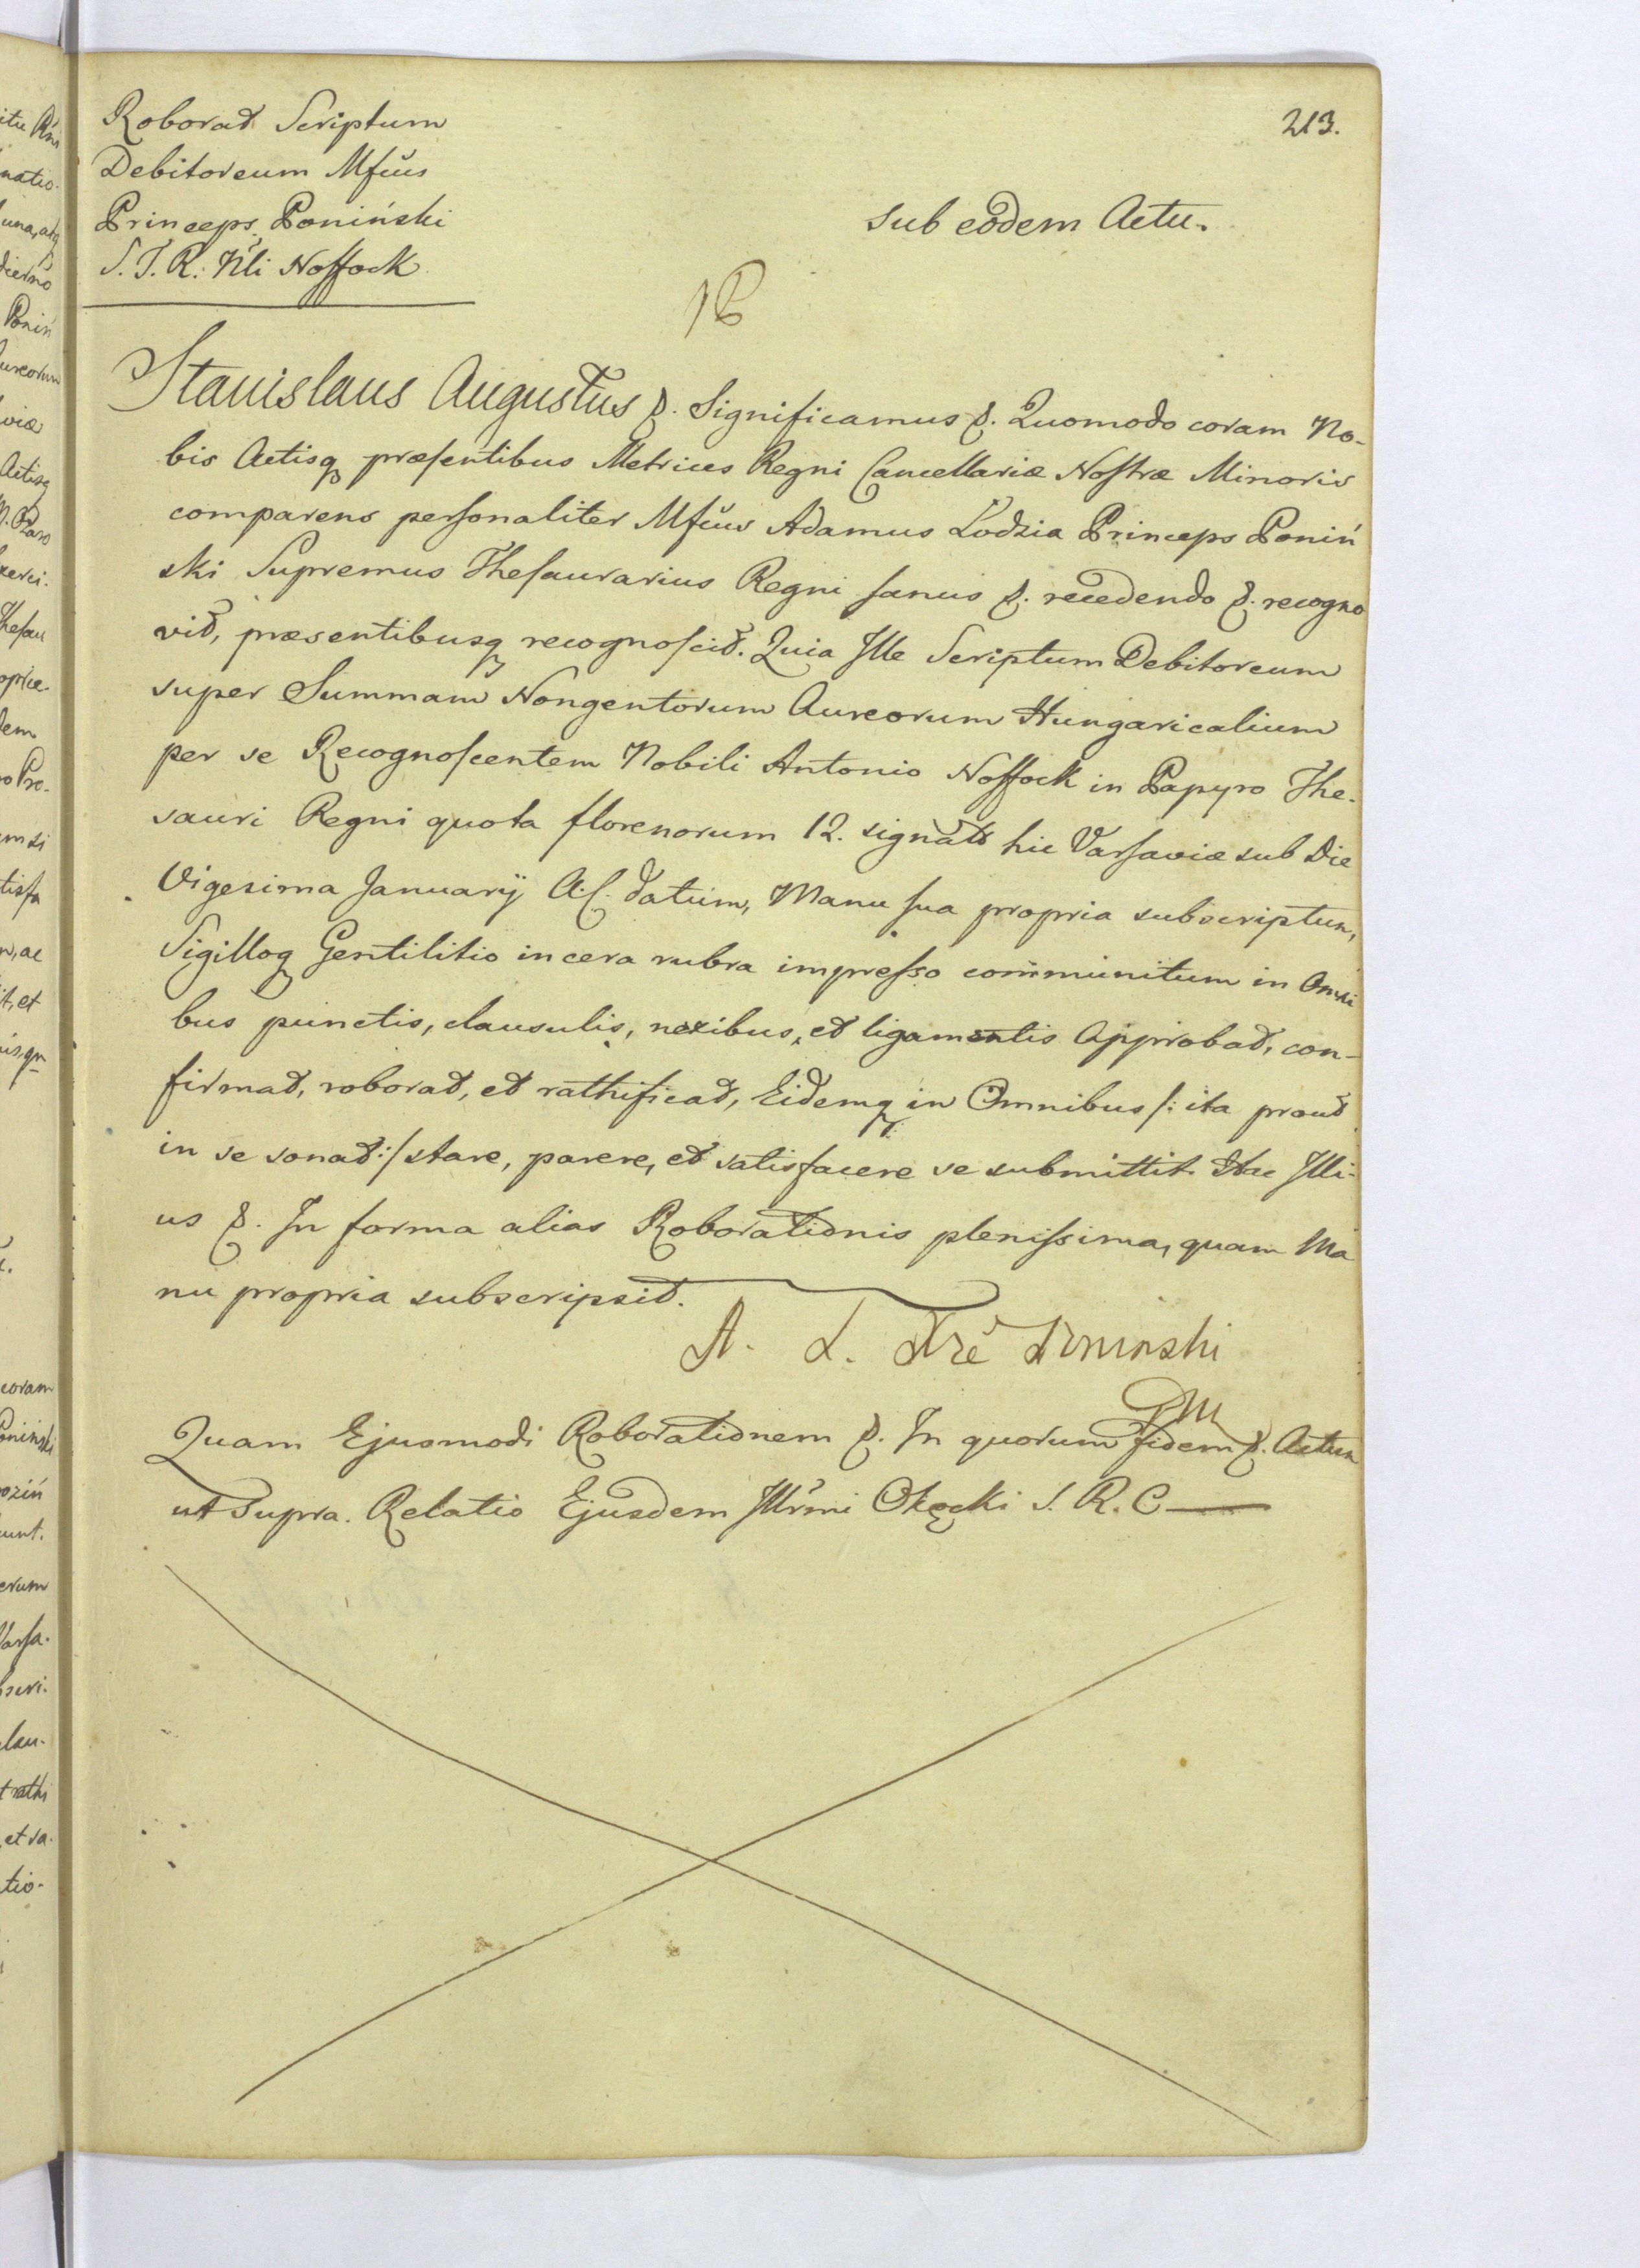 213.
Roborat Scriptum
Debitoreum Mfcus
Princeps Poniński
S. T. R. Nli Noffock
sub eodem Actu.
Stanislaus Augustus &. Significamus &. Quomodo coram No-
bis Actisq præsentibus Metrices Regni Cancellariæ Nostræ Minoris
comparens personaliter Mfcus Adamus Łodzia Princeps Poniń
ski Supremus Thesaurarius Regni sanus &. recedendo &. recogno
vit, præsentibusq recognoscit. Quia Ille Scriptum Debitoreum
super Summam Nongentorum Aureorum Hungaricalium
per se Recognoscentem Nobili Antonio Noffock in Papyro The-
sauri Regni quota florenorum 12. signato hic Varsaviæ sub Die
Vigesima Januarÿ A. C. datum, Manu sua propria subscriptum,
Sigilloq Gentilitio in cera rubra impresso communitum in Omni
bus punctis, clausulis, nexibus, et ligamentis Approbat, con-
firmat, roborat, et rathificat, Eidemq in Omnibus /: ita prout
in se sonat :/ stare, parere, et satisfacere se submittit. Hac Illi-
us &. In forma alias Roborationis plenissima, quam Ma
nu propria subscripsit.
A. L. Poninski
Quam Ejusmodi Roborationem &. In quorum fidem &. Actum
ut supra. Relatio Ejusdem Illrmi Okęcki S. R. C
itu
natio.
una,
Ponin
viæ
Actisq
Thesau
dem
tisfa
it, et
coram
Poninski
unt.
erum
Varsa-
et ra-
tio-